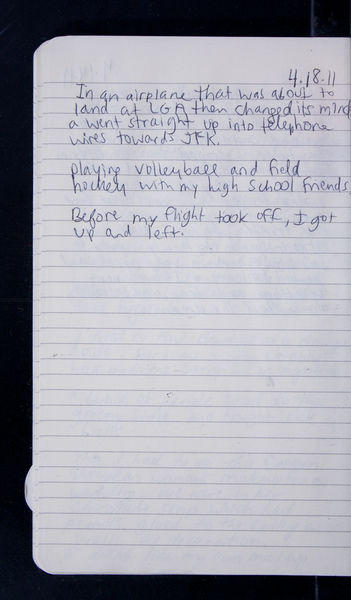 4.18.11
In an airplane that was about to
land at LGA then changed its mind
a went straight up into telephone
wires towards JFK.
playing volleyball and field
hockey with my high school friends.
Before my flight took off, I got
up and left.